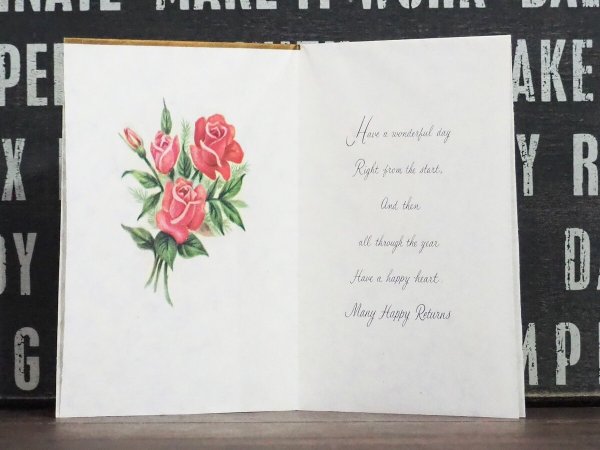 INATE MAKE IT WORK
PE
AKE
X
Y R
DY
DA
G
MPL
Have a wonderful day
Right from the start,
And then
all through the year
Have a happy heart.
Many Happy Returns